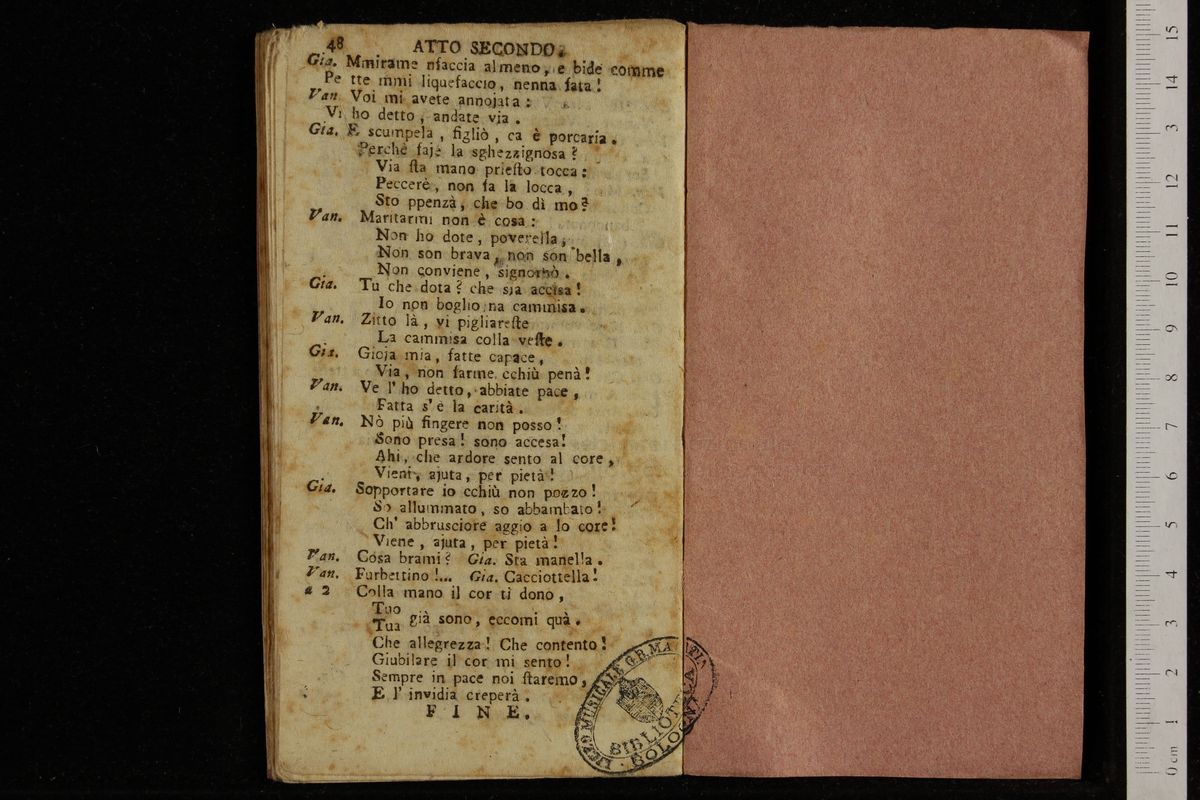 48 ATTO SECONDO.
Gia. Mmirame nfaccia almeno, e bide comme
Pe tte mmi liquefaccio, nenna fata!
Van. Voi mi avete annojata:
Vi ho detto, andate via.
Gia. E scumpela, figliò, ca è porcaria.
Perchè faje la sghezzignosa?
Via sta mano priesto tocca:
Peccerè, non fa la locca,
Sto ppenzà, che bo dì mo?
Van. Maritarmi non è cosa:
Non ho dote, poverella,
Non son brava, non son bella,
Non conviene, signorbò.
Gia. Tu che dota? che sia accisa!
Io non boglio na cammisa.
Van. Zitto là, vi pigliareste
La cammisa colla veste.
Gia. Gioja mia, fatte capace,
Via, non farme cchiù penà!
Van. Ve l' ho detto, abbiate pace,
Fatta s' è la carità.
Van. Nò più fingere non posso!
Sono presa! sono accesa!
Ahi, che ardore sento al core,
Vieni, ajuta, per pietà!
Gia. Sopportare io cchiù non pozzo!
So allummato, so abbambato!
Ch' abbrusciore aggio a lo core!
Viene, ajuta, per pietà!
Van. Cosa brami? Gia. Sta manella.
Van. Furbettino!... Gia. Cacciottella!
a 2 Colla mano il cor ti dono,
Tuo
Tua già sono, eccomi quà.
Che allegrezza! Che contento!
Giubilare il cor mi sento!
Sempre in pace noi staremo,
E l' invidia creperà.
FINE.
LICEO MUSICALE G.B. MARTINI
BIBLIOTECA
BOLOGNA
15
14
13
12
11
10
9
8
7
6
5
4
3
2
1
0 cm